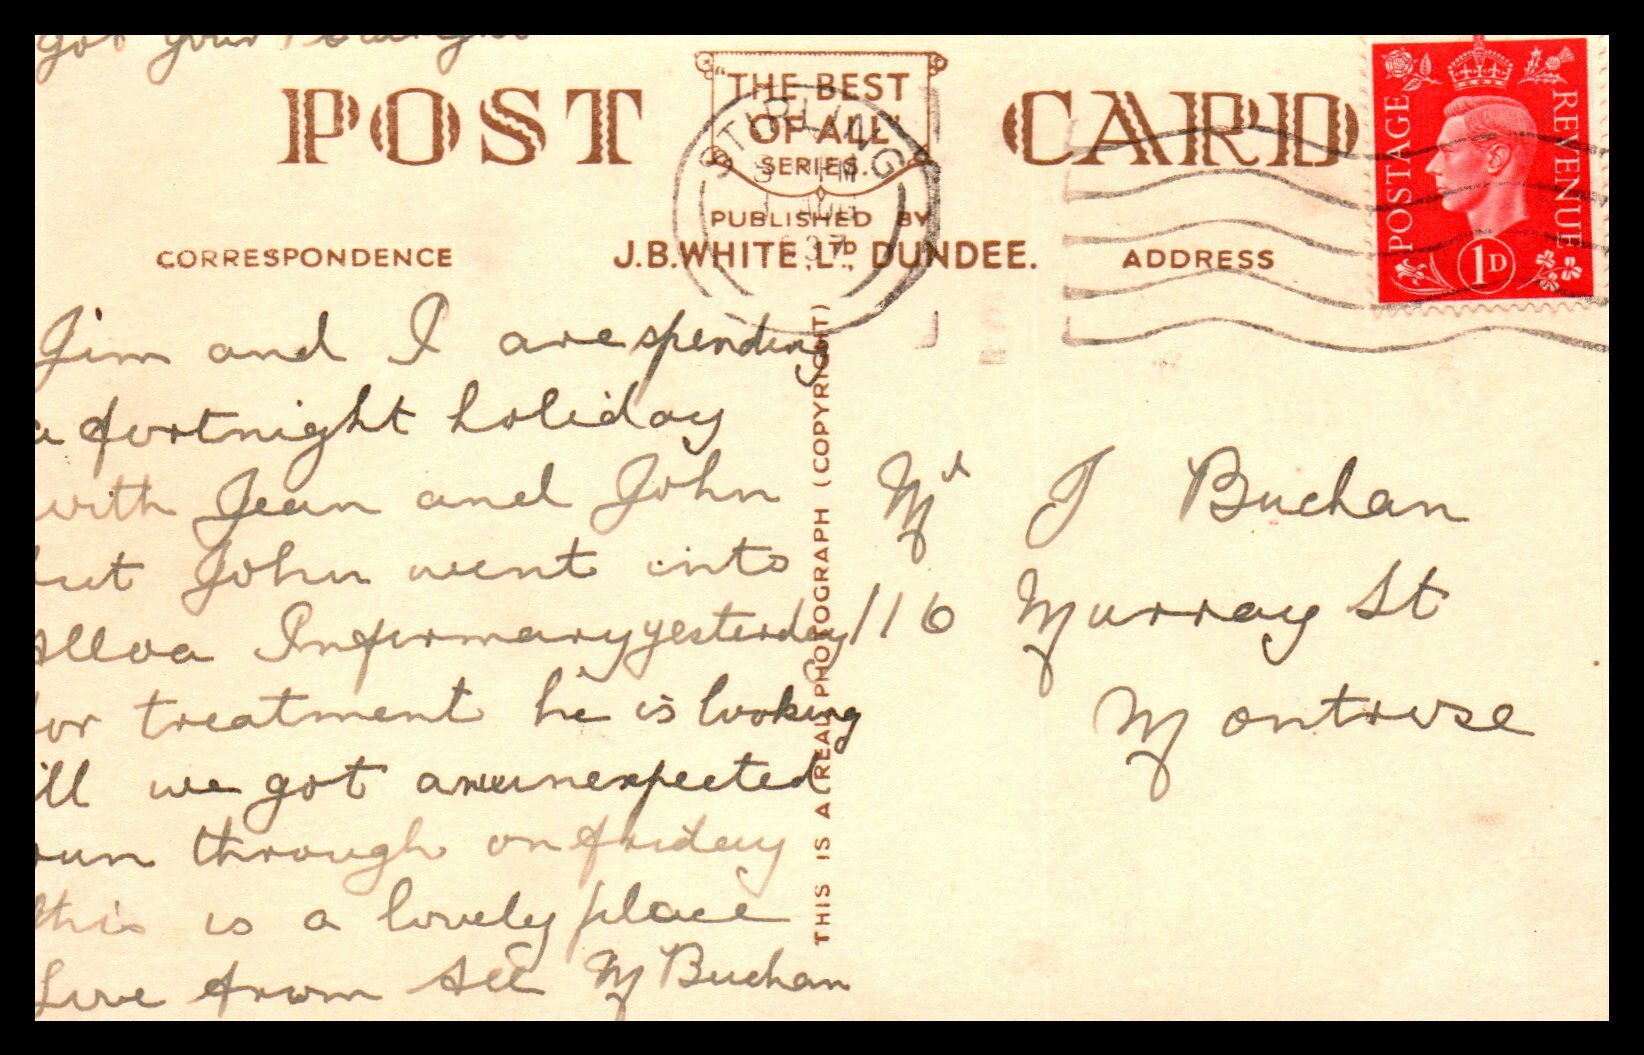 got your
POST CARD
"THE BEST
OF ALL"
SERIES.
STIRLING
PM
37
PUBLISHED BY
J.B.WHITE, LTD., DUNDEE.
CORRESPONDENCE
ADDRESS
POSTAGE
REVENUE
1D
Jim and I are spending
a fortnight holiday
with Jean and John
but John went into
Alloa Infirmary yesterday
for treatment he is looking
ill we got an unexpected
run through on friday
this is a lovely place
Love from All M Buchan
THIS IS A REAL PHOTOGRAPH (COPYRIGHT)
Mr J Buchan
116 Murray St
Montrose